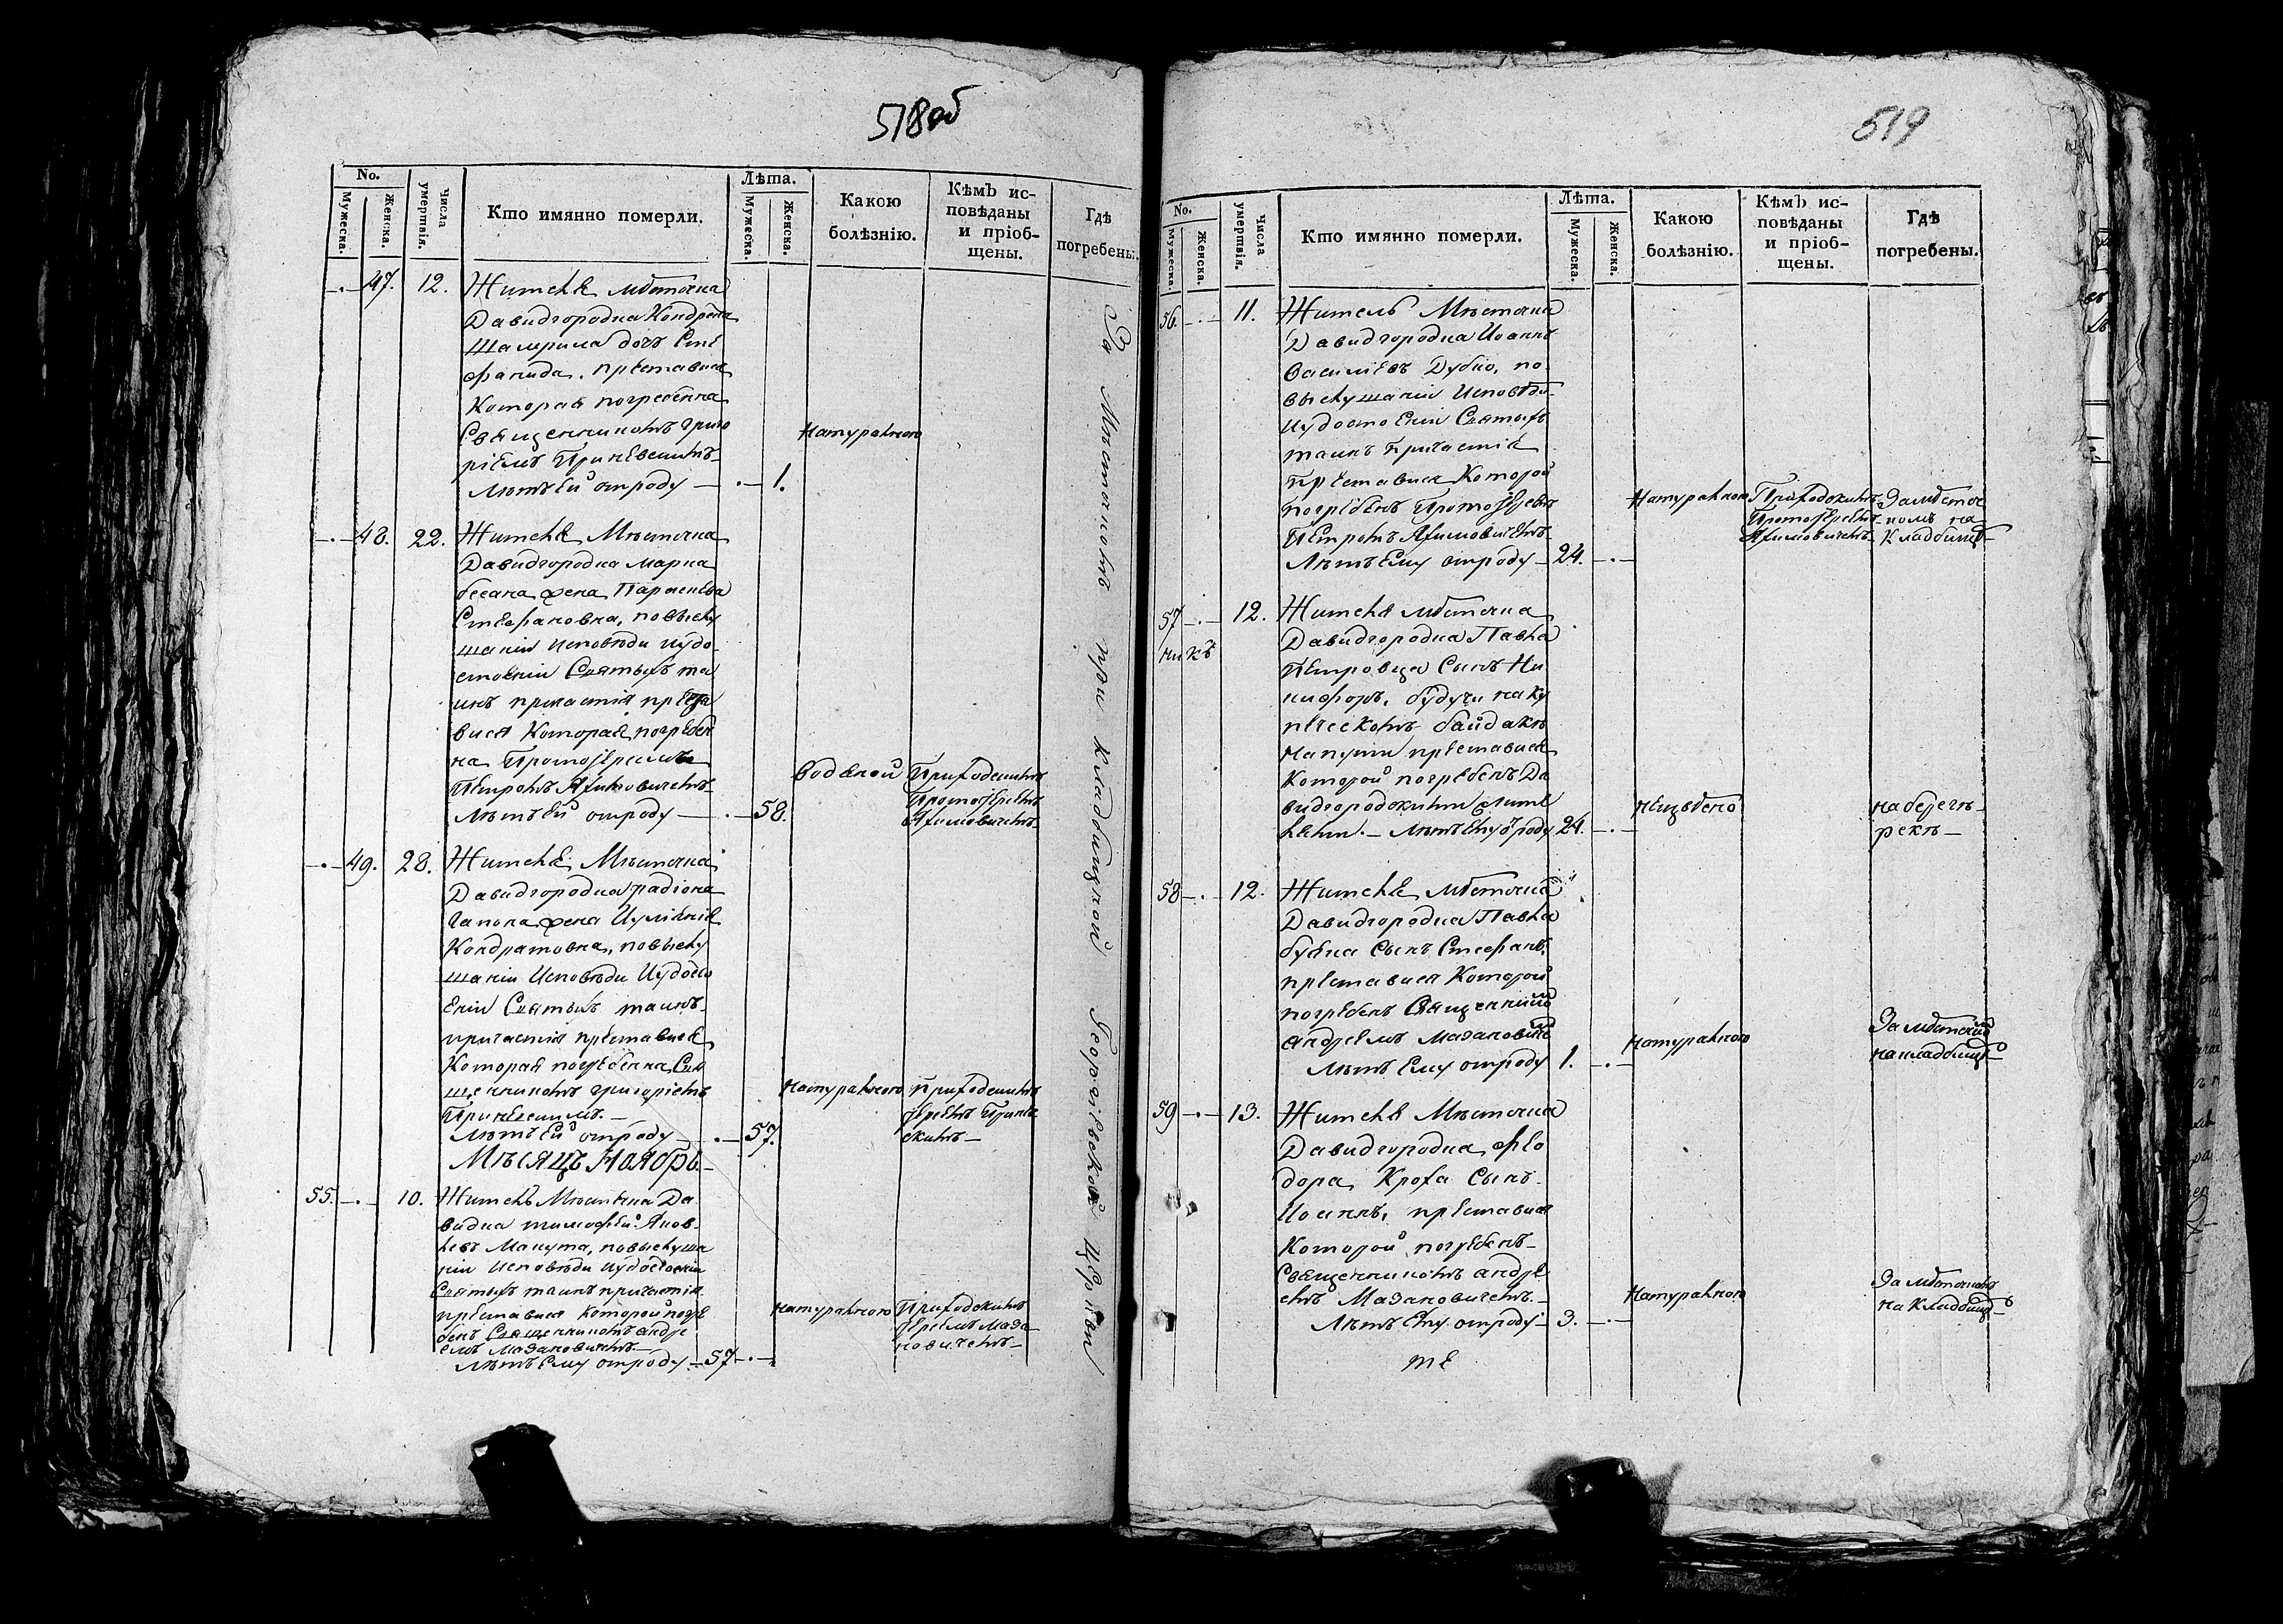 518об
No.
Мужеска.
Женска.
числа умертвія.
Кто имянно померли.
Лѣта.
Мужеска.
Женска.
Какою болѣзнію.
Кѣмъ исповѣданы и пріобщены.
Гдѣ погребены.
47. 12. Жителя мѣстечка
Давидгородка Кондрата
дочь Сте
фанида, преставися
Которая погребенна
Священникомъ Григо
ріемъ
Лѣтъ Ей отроду — 1.
Натуральною
48. 22. Жителя Мѣстечка
Давидгородка Марка
жена Параскева
Стефановна, повыслу
шаніи исповѣди иудо
стоеніи Святыхъ та
инъ причастія преста
вися Которая погребен
на Протоіереемъ
Петромъ Якимовичемъ
Лѣтъ Ей отроду — 58.
Водяной
Приходскимъ
Протоіереемъ
Якимовичемъ
49. 28. Жителя Мѣстечка
Давидгородка Радіона
жена Иуліянія
Кондратовна, повыслу
шаніи Исповѣди Иудосто
Еніи Святыхъ таинъ
причастія преставися
Которая погребенна Свя
щенникомъ Григоріемъ
Лѣтъ Ей отроду — 57.
Натуральною
Приходскимъ
Мѣсяцъ Ноябрь
55. 10. Житель Мѣстечка Да
видка Тимофѣй Яков
левъ Макута, повыслуша
ніи Исповѣди иудостоеніи
Святыхъ таинъ причастія
преставися которой погре
бенъ Священникомъ Андре
емъ Мазановичемъ
Лѣтъ Ему отроду — 57
Натуральною
Приходскимъ
Іереемъ Маза
новичемъ
За Мѣстечкомъ при Кладбищкой Георгіевской Церкви
519
No.
Мужеска.
Женска.
числа умертвія.
Кто имянно померли.
Лѣта.
Мужеска.
Женска.
Какою болѣзнію.
Кѣмъ исповѣданы и пріобщены.
Гдѣ погребены.
56. 11. Житель Мѣстечка
Давидгородка Иоаннъ
Василіевъ Дубко, по
выслушаніи Исповѣди
Иудостоеніи Святыхъ
таинъ Причастія
Преставися Которой
погребенъ Протоіереемъ
Петромъ Якимовичемъ
Лѣтъ Ему отроду — 24.
Натуральною
Приходскимъ
Протоіереемъ
Якимовичемъ
За мѣстеч
комъ на
Кладбищѣ
57 12. Жителя мѣстечка
Давидгородка Павла
Петровца Сынъ Ни
кифоръ, будучи на ку
печескомъ байдакѣ
напути преставися
Которой погребенъ Да
видгородскими жите
лями. — Лѣтъ Ему отроду 24.
неизвѣстно
на берегѣ
рекѣ —
58 12. Жителя мѣстечка
Давидгородка Павла
Сынъ Стефанъ,
преставися Которой
погребенъ Священникомъ
Андреемъ Мазановичемъ
Лѣтъ Ему отроду 1.
Натуральною
За мѣстечкомъ
на кладбищѣ
59 13. Жителя Мѣстечка
Давидгородка Фео
дора Кроха Сынъ
Иоаннъ, преставися
Которой погребенъ
Священникомъ Андре
емъ Мазановичемъ. —
Лѣтъ Ему отроду 3.
Натуральною
За мѣстечкомъ
на Кладбищѣ
те